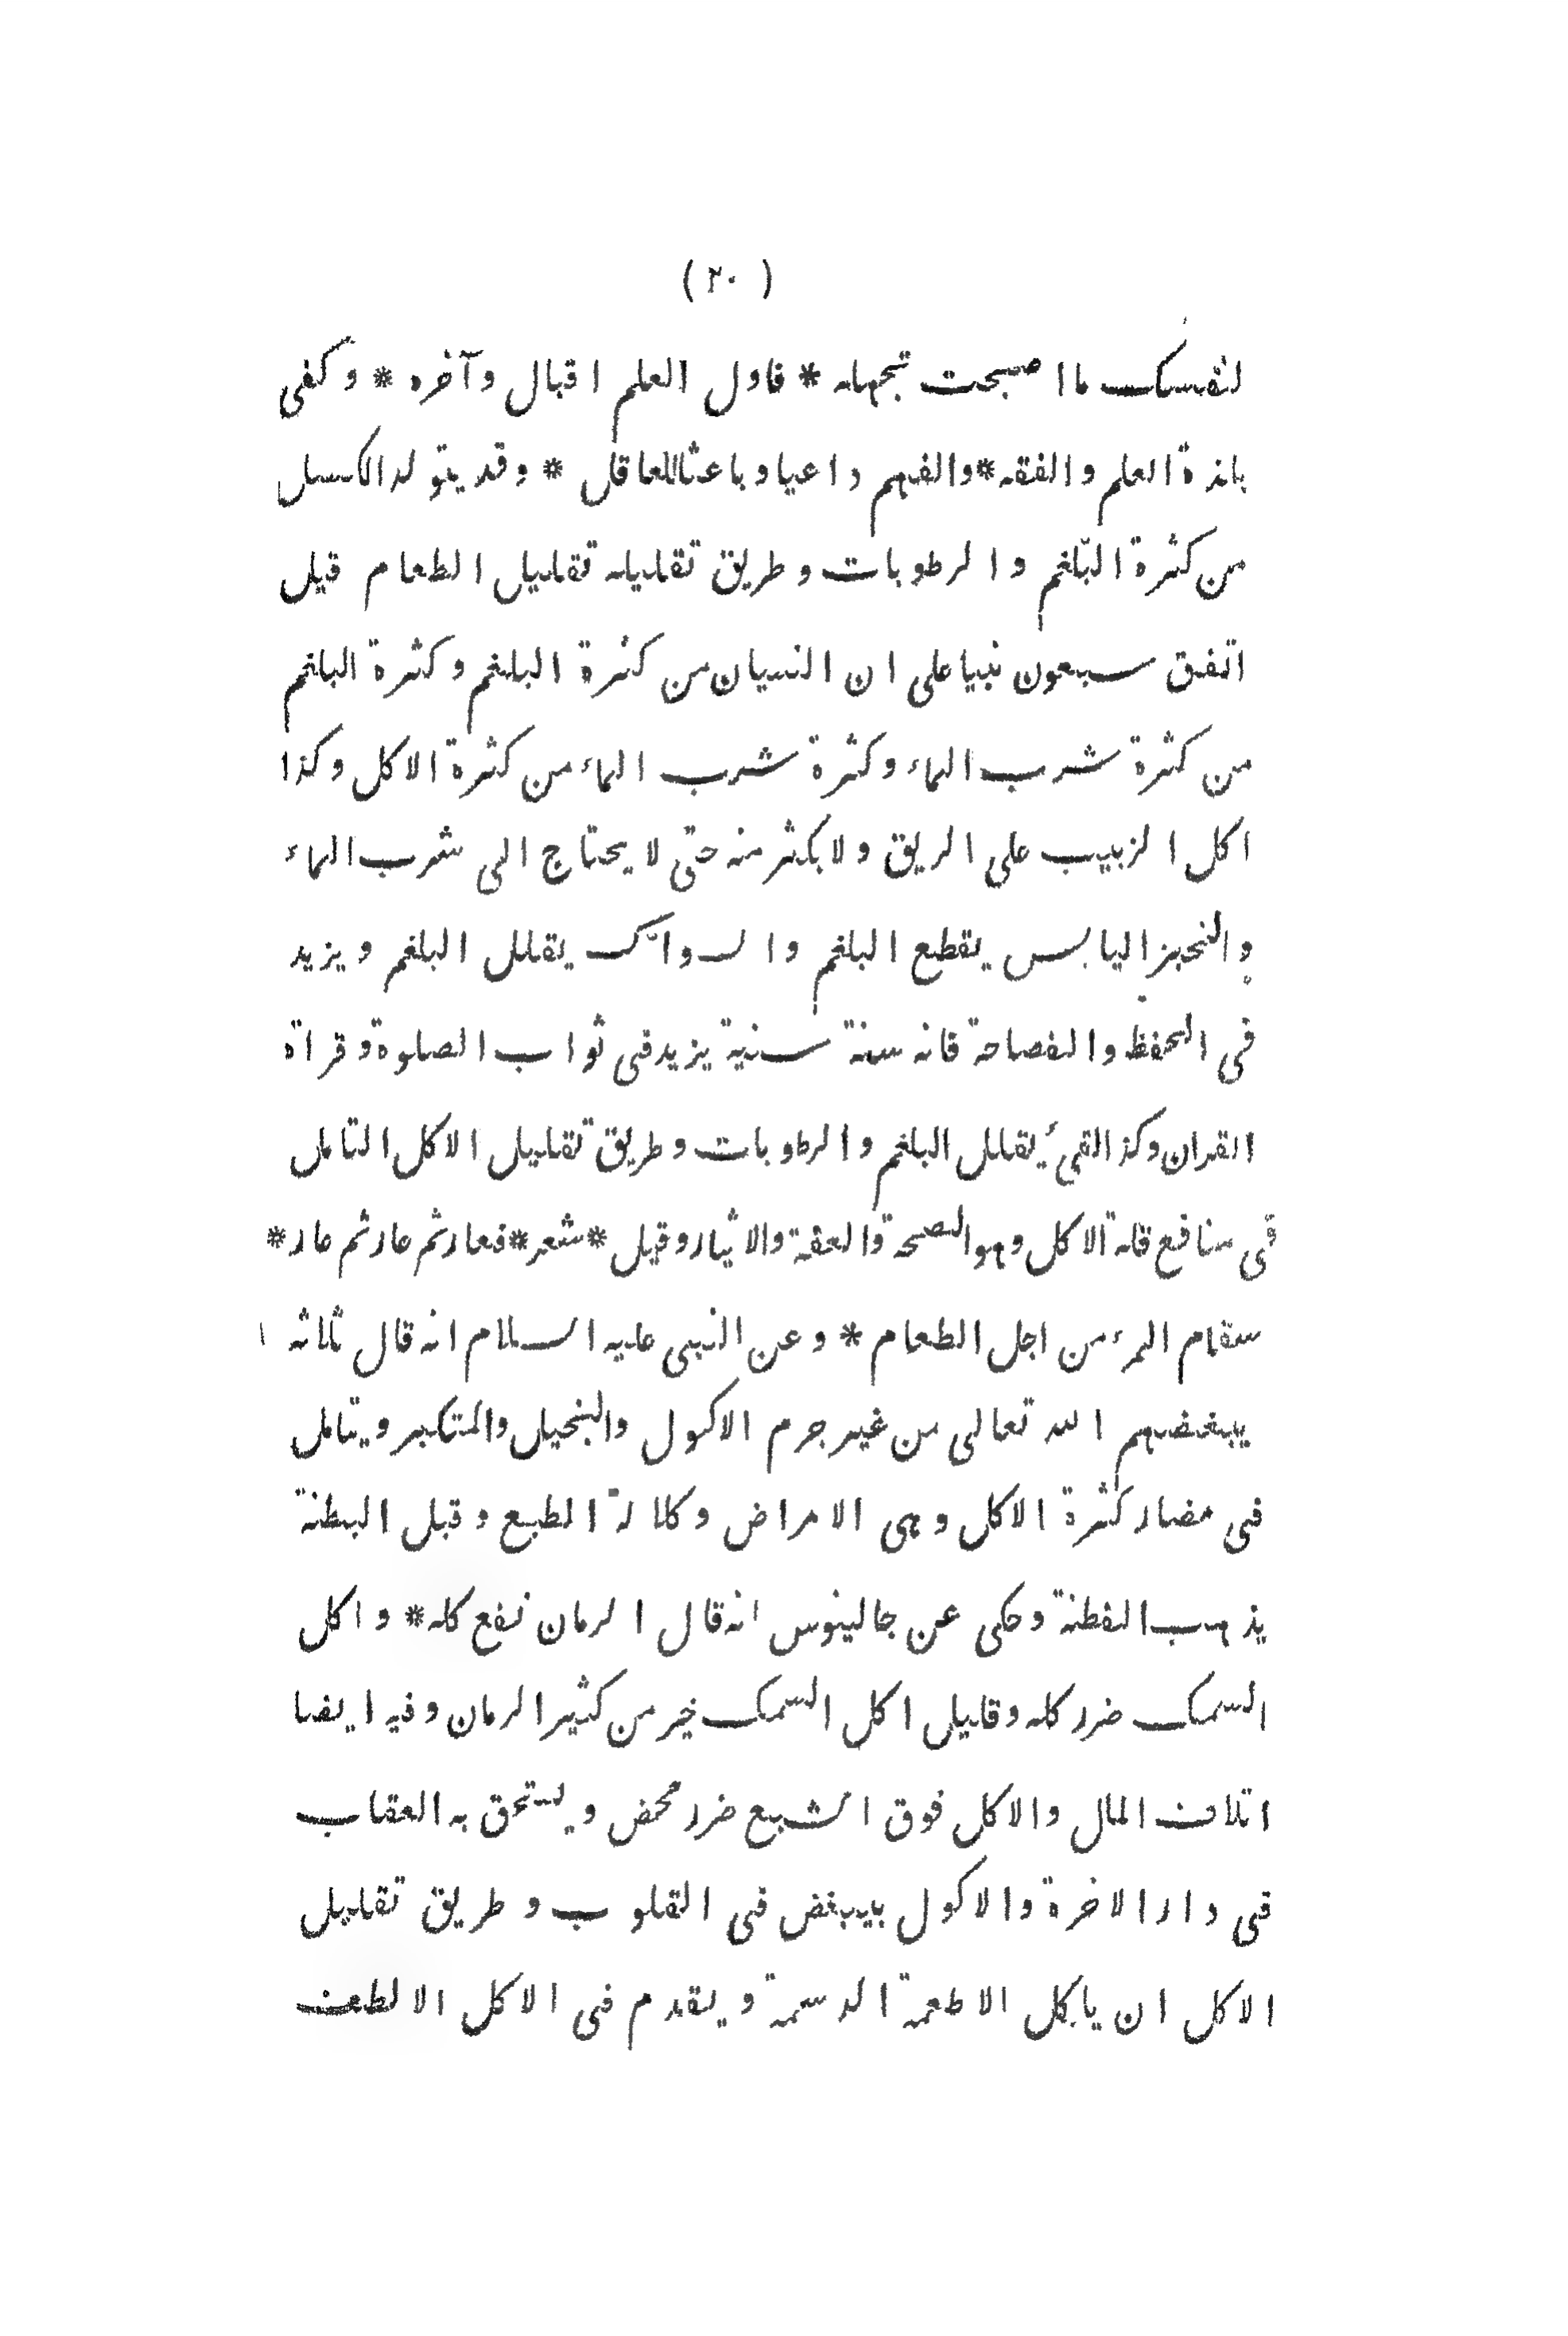 ( ٢٠ )
لنفسك ما اصبحت تجهله * فاول العلم اقبال وآخره * وكفى
بلذة العلم والفقه * والفهم داعيا وباعثا للعاقل * وقد يتولد الكسل
من كثرة البلغم والرطوبات وطريق تقليله تقليل الطعام قيل
اتفق سبعون نبيا على ان النسيان من كثرة البلغم وكثرة البلغم
من كثرة شرب الماء وكثرة شرب الماء من كثرة الاكل وكذا
اكل الزبيب على الريق ولا يكثر منه حتى لا يحتاج الى شرب الماء
والخبز اليابس يقطع البلغم والسواك يقلل البلغم ويزيد
فى الحفظ والفصاحة فانه سنة سنية يزيد فى ثواب الصلوة وقراة
القران وكذا القىء يقلل البلغم والرطوبات وطريق تقليل الاكل التامل
فى منافع قلة الاكل وهو الصحة والعفة والاثيار وقيل * شعر * فعار ثم عار ثم عار *
سقام المرء من اجل الطعام * وعن النبى عليه السلام انه قال ثلاثه
يبغضهم الله تعالى من غير جرم الاكول والبخيل والمتكبر ويتامل
فى مضار كثرة الاكل وهى الامراض وكلالة الطبع وقيل البطنة
يذهب الفطنة وحكى عن جالينوس انه قال الرمان نفع كله * واكل
السمك ضرر كله وقليل اكل السمك خير من كثير الرمان وفيه ايضا
اتلاف المال والاكل فوق الشبع ضرر محض ويستحق به العقاب
فى دار الاخرة والاكول يبغض فى القلوب وطريق تقليل
الاكل ان ياكل الاطعمة الدسمة ويقدم فى الاكل الالطف